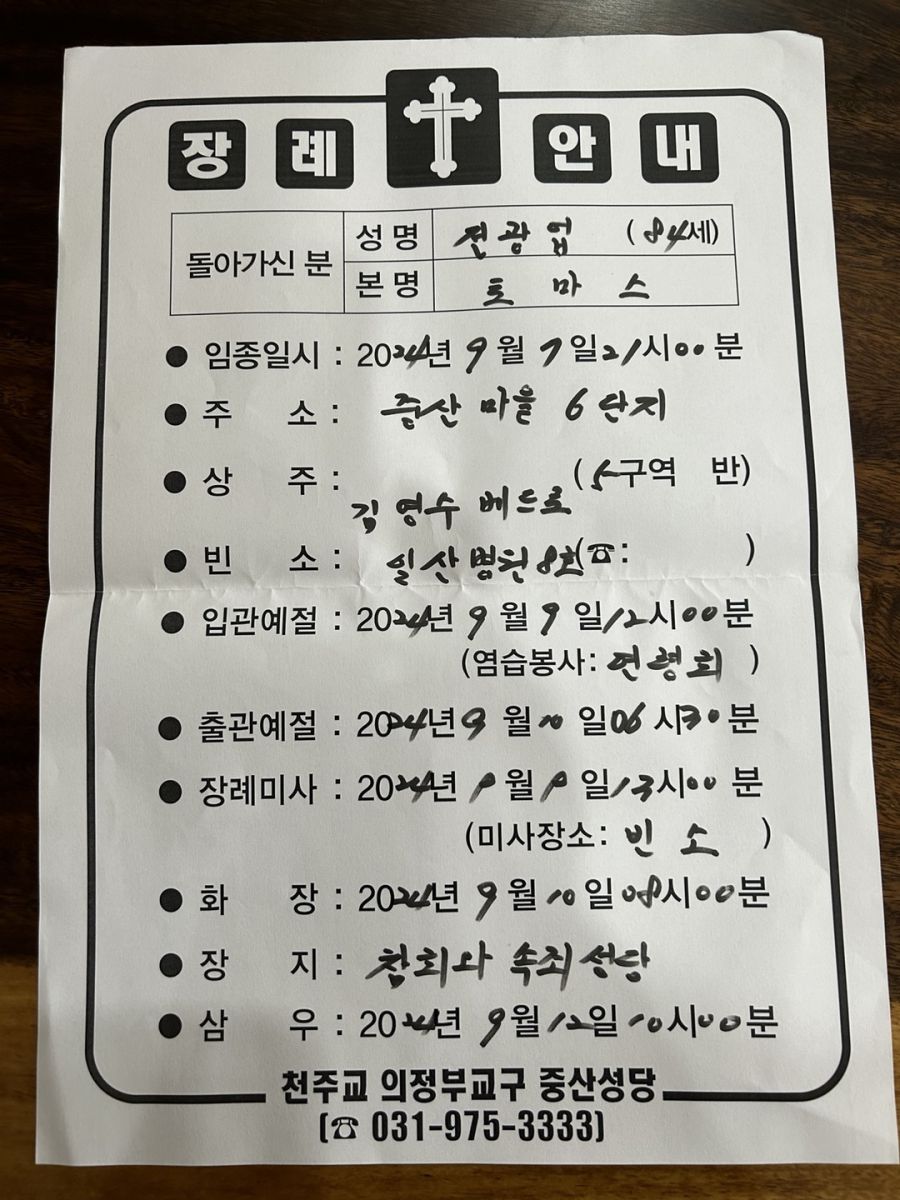 장례 안내
돌아가신 분 성명 전광업 (84세)
본명 토마스
● 임종일시 : 2024년 9월 7일 21시 00분
● 주 소 : 중산마을 6단지
● 상 주 : (5구역 반)
김영수 베드로
● 빈 소 : 일산병원 8호 (☎: )
● 입관예절 : 2024년 9월 9일 12시 00분
(염습봉사: 연령회 )
● 출관예절 : 2024년 9월 10일 06시 30분
● 장례미사 : 2024년 9월 9일 13시 00분
(미사장소: 빈소 )
● 화 장 : 2024년 9월 10일 08시 00분
● 장 지 : 참회와 속죄성당
● 삼 우 : 2024년 9월 12일 10시 00분
천주교 의정부교구 중산성당
(☎ 031-975-3333)